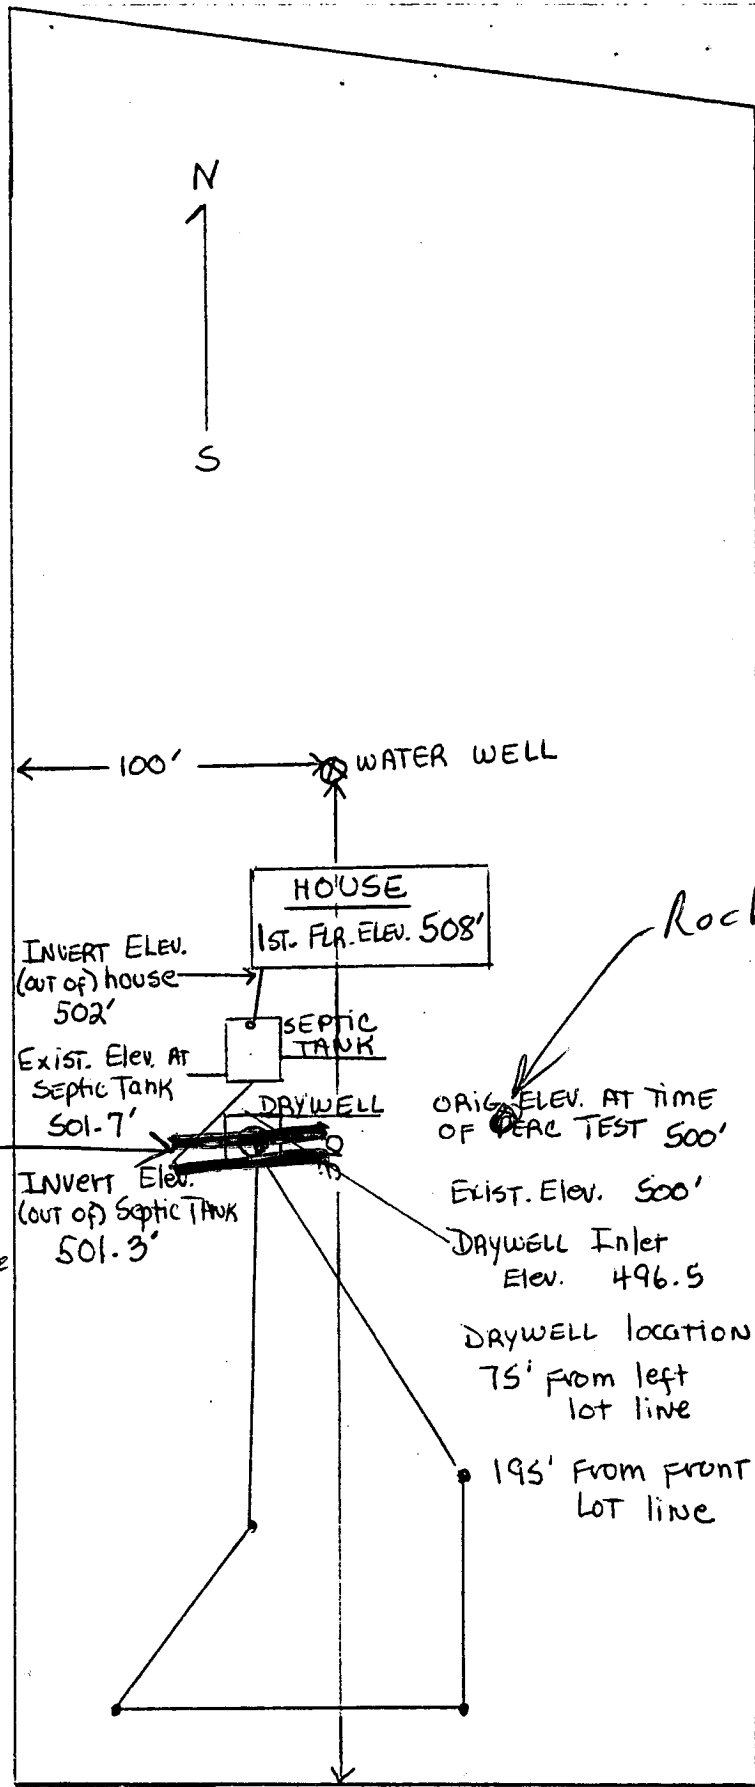 N
S
100'
WATER WELL
HOUSE
1ST. FLR. ELEV. 508'
INVERT ELEV.
(OUT OF) house
502'
SEPTIC
TANK
Exist. Elev. At
Septic Tank
501.7'
DRYWELL
ORIG ELEV. AT TIME
OF PERC TEST 500'
INVERT Elev.
(OUT OF) Septic TANK
501.3'
Exist. Elev. 500'
DRYWELL Inlet
Elev. 496.5
DRYWELL location
75' From left
lot line
195' From front
LOT line